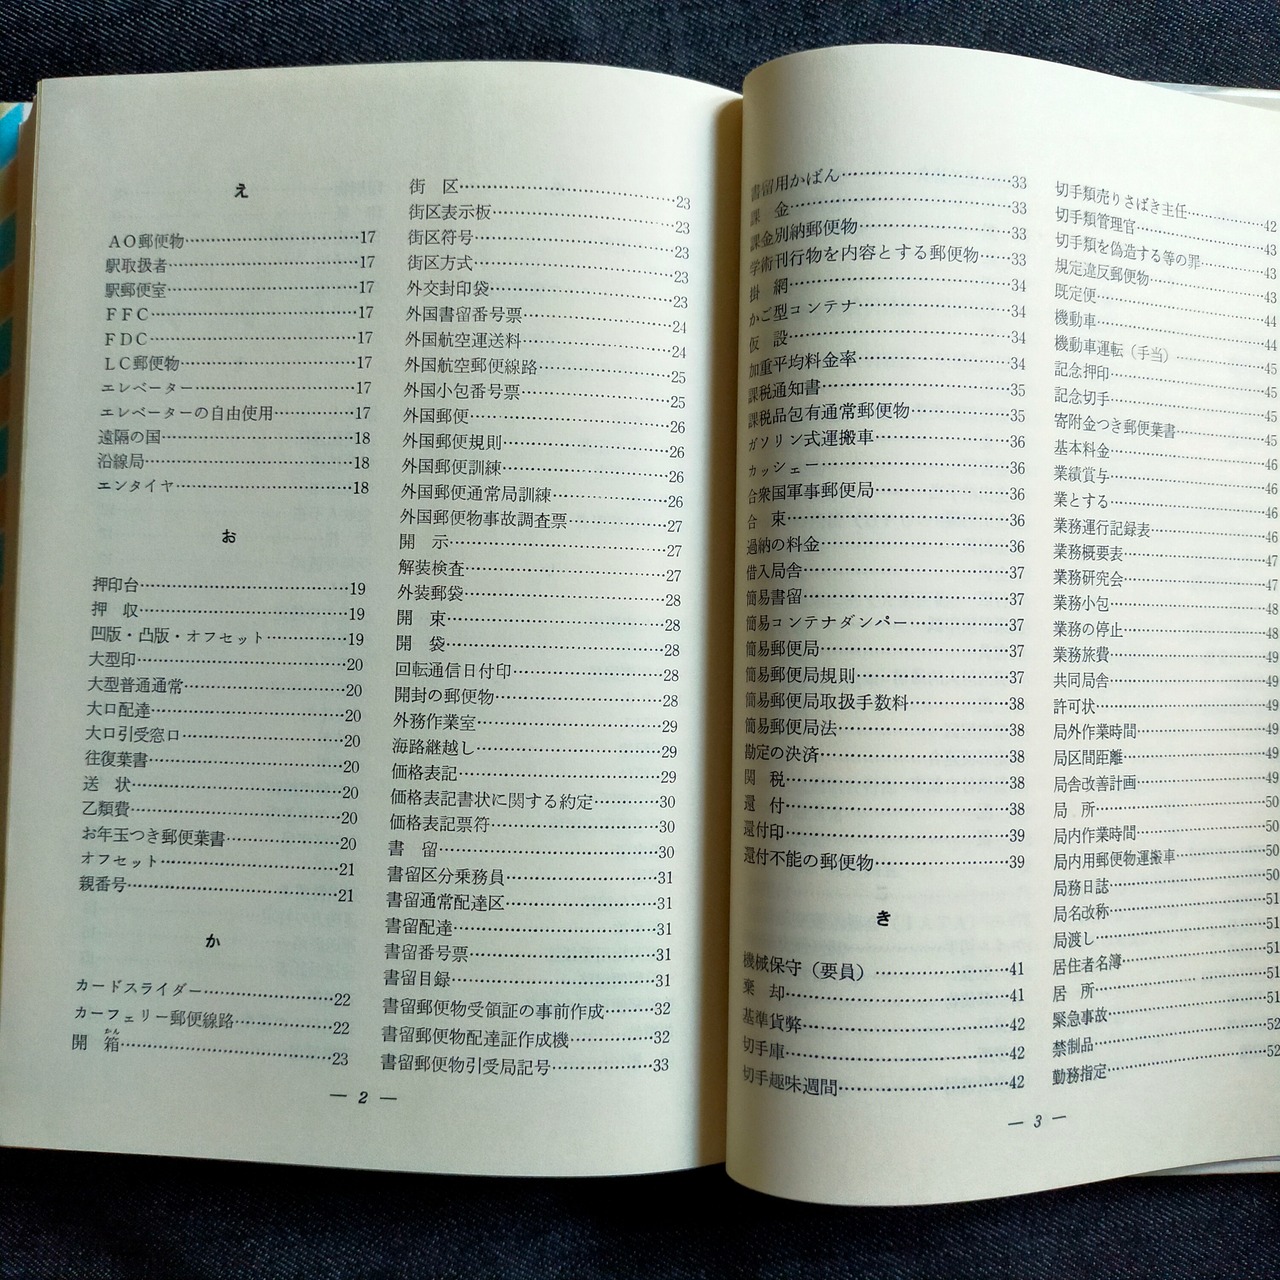 え
ＡＯ郵便物………17
駅取扱者………17
駅郵便室………17
ＦＦＣ………17
ＦＤＣ………17
ＬＣ郵便物………17
エレベーター………17
エレベーターの自由使用………17
遠隔の国………18
沿線局………18
エンタイヤ………18
お
押印台………19
押　収………19
凹版・凸版・オフセット………19
大型印………20
大型普通通常………20
大口配達………20
大口引受窓口………20
往復葉書………20
送　状………20
乙類費………20
お年玉つき郵便葉書………20
オフセット………21
親番号………21
か
カードスライダー………22
カーフェリー郵便線路………22
かん
開　箱………23
街　区………23
街区表示板………23
街区符号………23
街区方式………23
外交封印袋………23
外国書留番号票………24
外国航空運送料………24
外国航空郵便線路………25
外国小包番号票………25
外国郵便………26
外国郵便規則………26
外国郵便訓練………26
外国郵便通常局訓練………26
外国郵便物事故調査票………27
開　示………27
解装検査………27
外装郵袋………28
開　束………28
開　袋………28
回転通信日付印………28
開封の郵便物………28
外務作業室………29
海路継越し………29
価格表記………29
価格表記書状に関する約定………30
価格表記票符………30
書　留………30
書留区分乗務員………31
書留通常配達区………31
書留配達………31
書留番号票………31
書留目録………31
書留郵便物受領証の事前作成………32
書留郵便物配達証作成機………32
書留郵便物引受局記号………33
― 2 ―
書留用かばん………33
課　金………33
課金別納郵便物………33
学術刊行物を内容とする郵便物………33
掛　網………34
かご型コンテナ………34
仮　設………34
加重平均料金率………34
課税通知書………35
課税品包有通常郵便物………35
ガソリン式運搬車………36
カッシェー………36
合衆国軍事郵便局………36
合　束………36
過納の料金………36
借入局舎………37
簡易書留………37
簡易コンテナダンパー………37
簡易郵便局………37
簡易郵便局規則………37
簡易郵便局取扱手数料………38
簡易郵便局法………38
勘定の決済………38
関　税………38
還　付………38
還付印………39
還付不能の郵便物………39
き
機械保守（要員）………41
棄　却………41
基準貨幣………42
切手庫………42
切手趣味週間………42
切手類売りさばき主任………42
切手類管理官………43
切手類を偽造する等の罪………43
規定違反郵便物………43
既定便………44
機動車………44
機動車運転（手当）………45
記念押印………45
記念切手………45
寄附金つき郵便葉書………45
基本料金………46
業績賞与………46
業とする………46
業務運行記録表………46
業務概要表………47
業務研究会………47
業務小包………48
業務の停止………48
業務旅費………49
共同局舎………49
許可状………49
局外作業時間………49
局区間距離………49
局舎改善計画………49
局　所………50
局内作業時間………50
局内用郵便物運搬車………50
局務日誌………50
局名改称………51
局渡し………51
居住者名簿………51
居　所………51
緊急事故………51
禁制品………52
勤務指定………52
― 3 ―